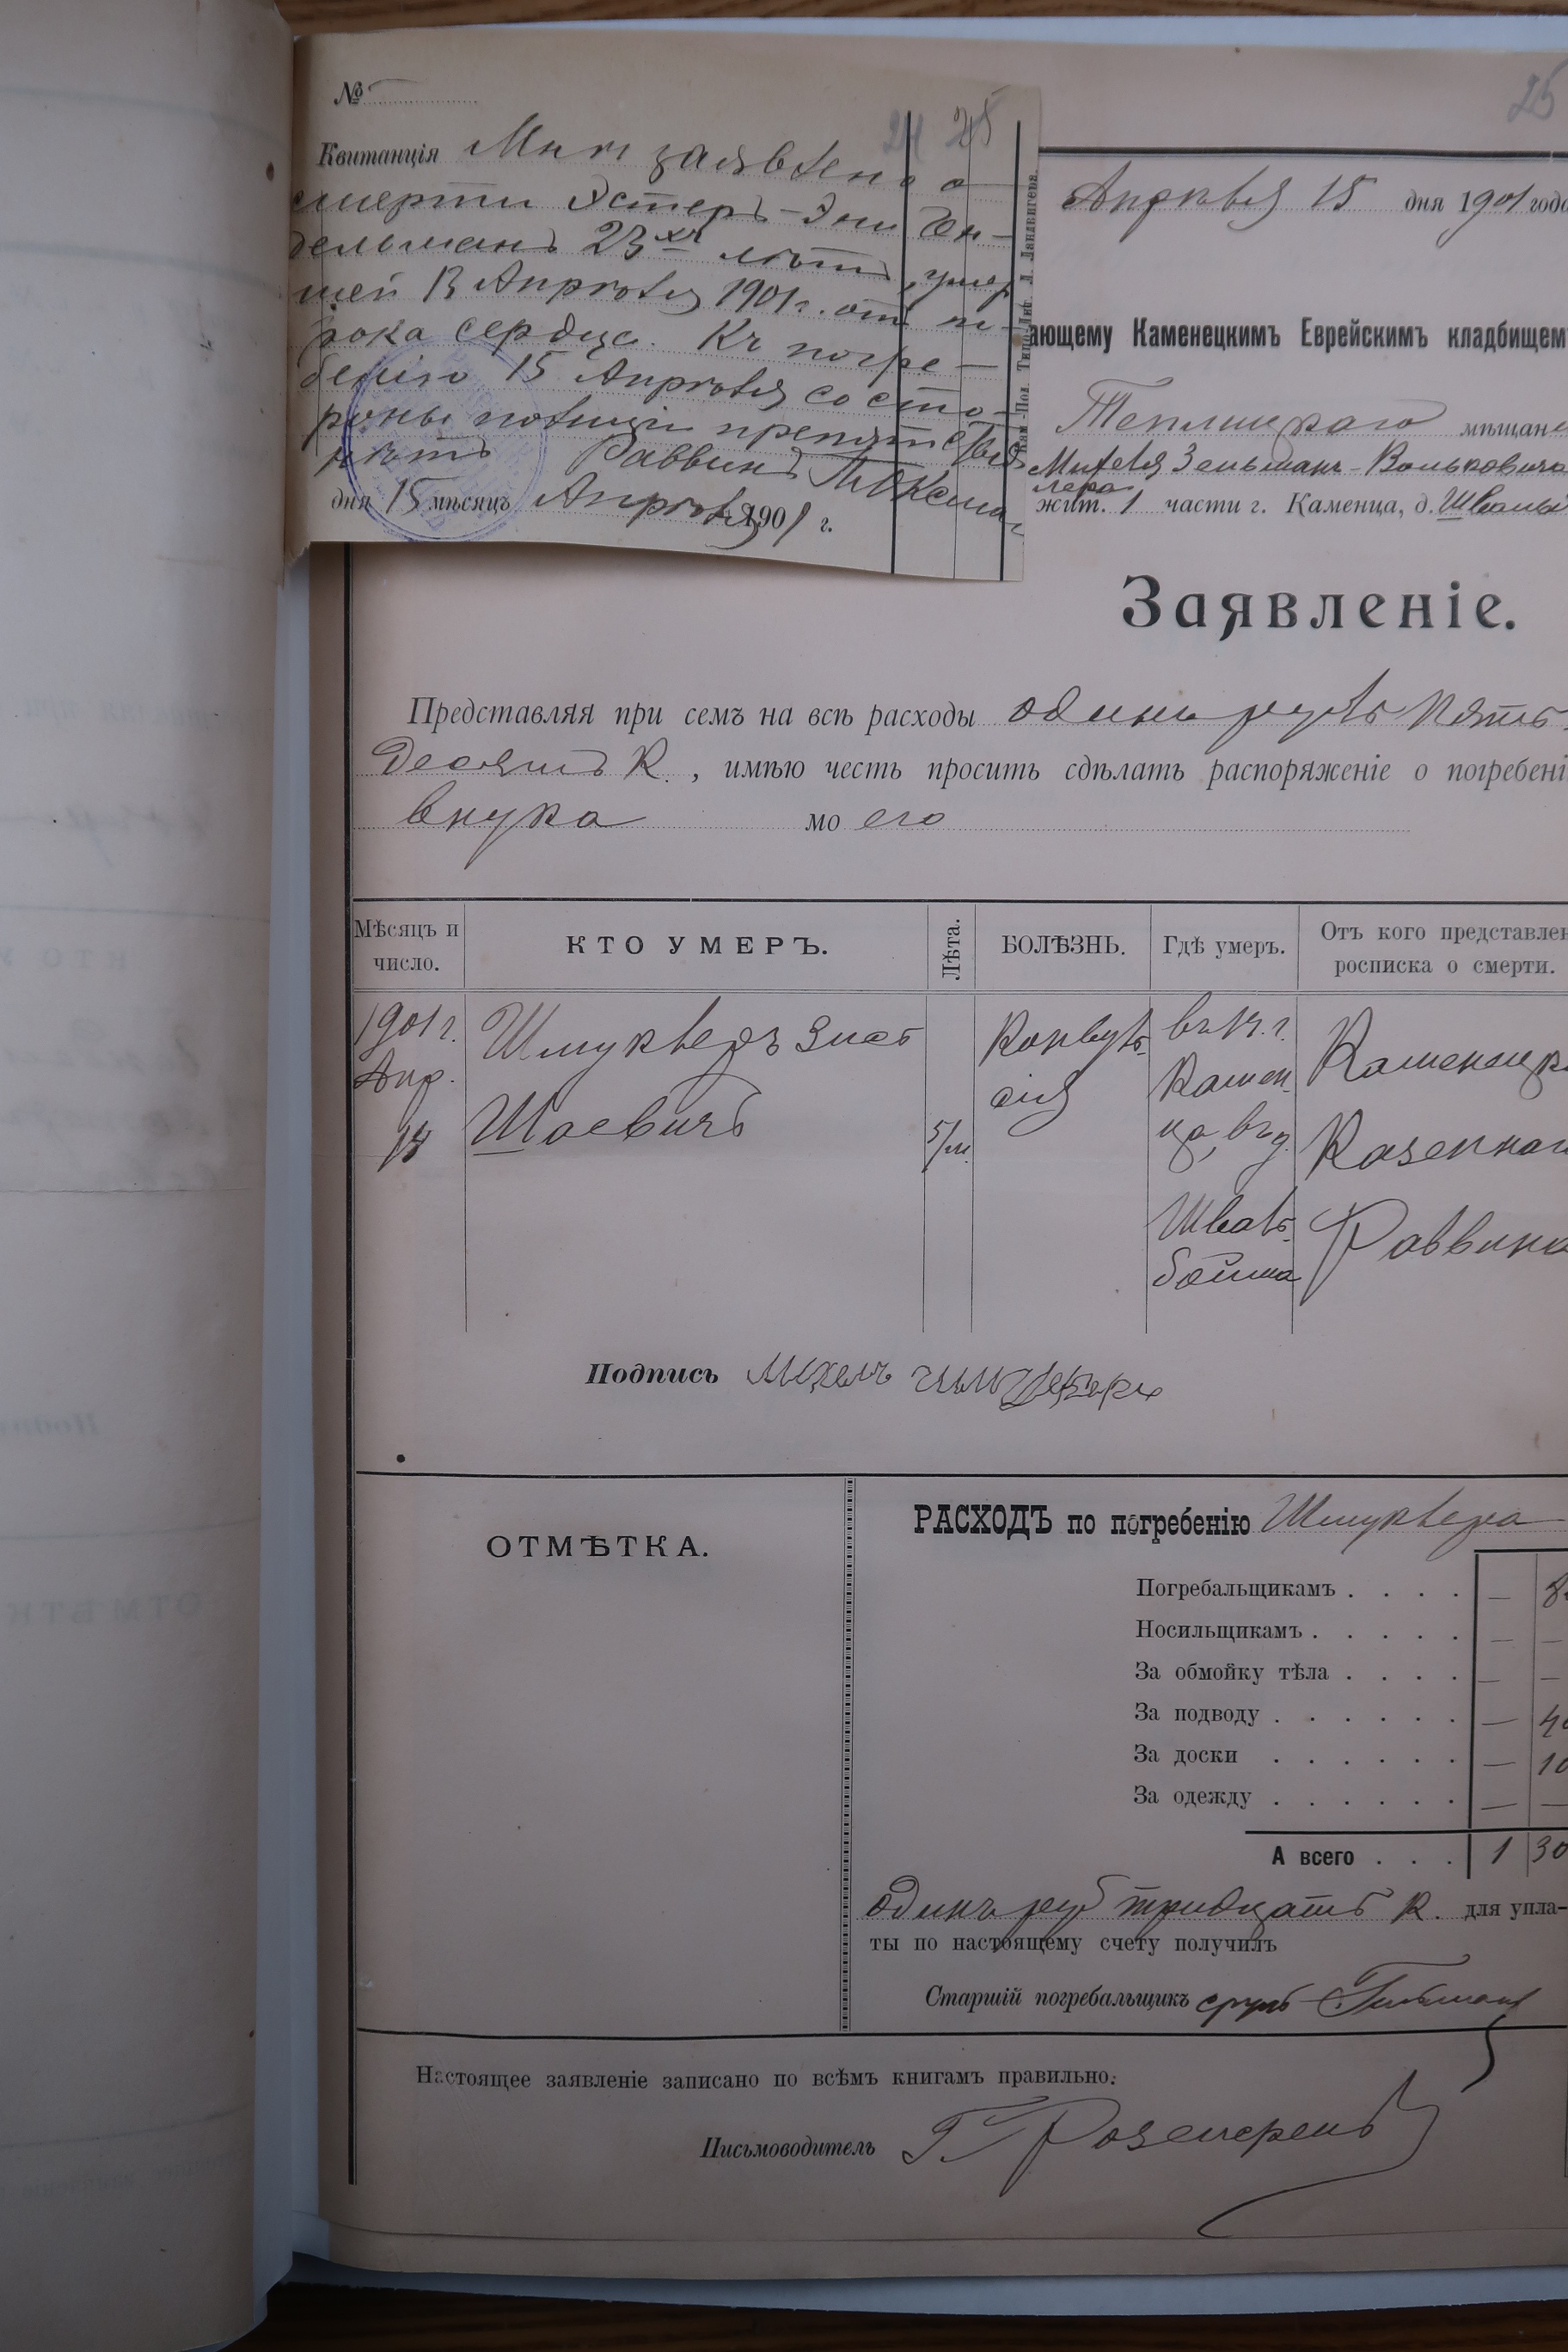 №
Квитанція Мнѣ заявлено о
смерти Эстеръ-Эни Ен-
дельманъ 23хъ лѣтъ, умер
шей 13 Апрѣля 1901 г. отъ по-
рока сердца. Къ погре-
бенію 15 Апрѣля со сто-
роны полиціи препятствій
нѣтъ Раввинъ
дня 15 мѣсяцъ Апрѣля 1901 г.
25
Апрѣля 15 дня 1901 года
ающему Каменецкимъ Еврейскимъ кладбищем
Теплицкаго мѣщан
Михеля Зельман-Вольковича
жит. 1 части г. Каменца, д.
Заявленіе.
Представляя при семъ на всѣ расходы одинъ рубль пять-
десятъ К., имѣю честь просить сдѣлать распоряженіе о погребені
внука моего
Мѣсяцъ и число.
КТО УМЕРЪ.
Лѣта.
БОЛѢЗНЬ.
Гдѣ умеръ.
Отъ кого представлен
росписка о смерти.
1901 г.
Апр.
Шмуклеръ Зись
Шаевичъ
5/м.
Конвуль-
сія
въ 1 ч. г.
Камен-
ца, въ д.
Шваль-
бойма
Каменецк
Казеннаг
Раввина
Подпись михель
ОТМѢТКА.
РАСХОДЪ по погребенію Шмуклера
Погребальщикамъ . . . . —
Носильщикамъ . . . . . — —
За обмойку тѣла . . . . — —
За подводу . . . . . . — 40
За доски . . . . . . — 10
За одежду . . . . . . — —
А всего . . . 1 30
одинъ руб тридцать К. для упла-
ты по настоящему счету получилъ
Старшій погребальщикъ сруль
Настоящее заявленіе записано по всѣмъ книгамъ правильно:
Письмоводитель Г.